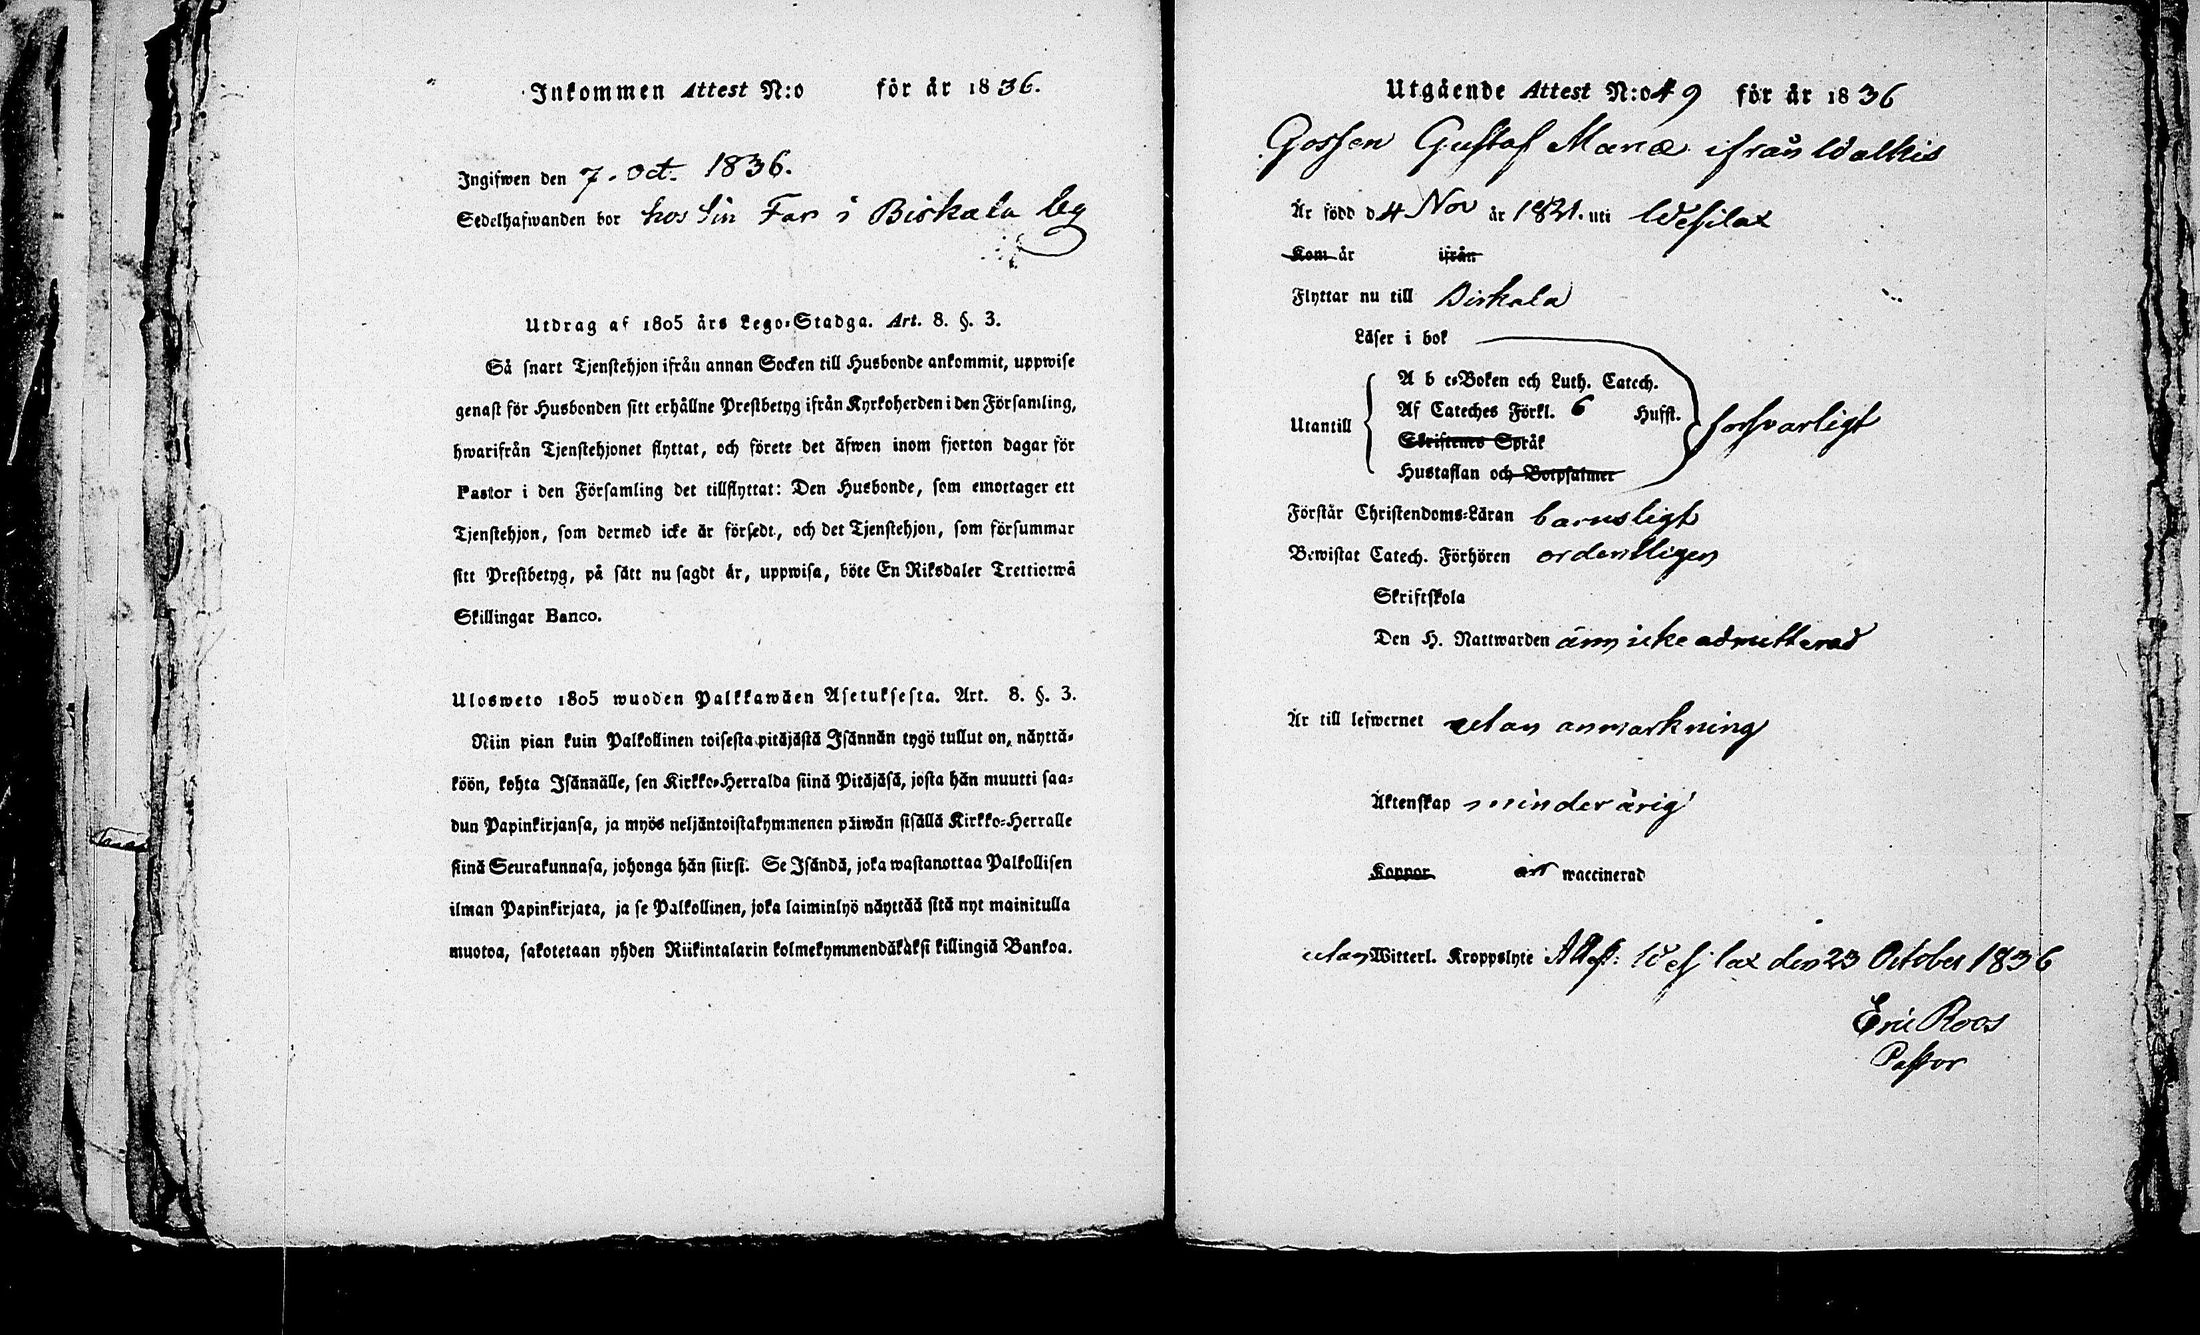 Inkommen Attest N:o för år 1836.
Ingifwen den 7. Oct. 1836.
Sedelhafwanden bor hos sin Far i Birkala by
Utdrag af 1805 års Lego-Stadga. Art. 8. §. 3.
Så snart Tjenstehjon ifrån annan Socken till Husbonde ankommit, uppwise
genast för Husbonden sitt erhållne Prestbetyg ifrån Kyrkoherden i den Församling,
hwarifrån Tjenstehjonet flyttat, och förete det äfwen inom fjorton dagar för
Pastor i den Församling det tillflyttat: Den Husbonde, som emottager ett
Tjenstehjon, som dermed icke är försedt, och det Tjenstehjon, som försummar
sitt Prestbetyg, på sätt nu sagdt är, uppwisa, böte En Riksdaler Trettiotwå
Skillingar Banco.
Ulosweto 1805 wuoden Palkkawäen Asetuksesta. Art. 8. §. 3.
Niin pian kuin Palkollinen toisesta pitäjästä Isännän tygö tullut on, näyttä-
köön, kohta Isännälle, sen Kirkko-Herralda siinä Pitäjäsä, josta hän muutti saa-
dun Papinkirjansa, ja myös neljäntoistakymmenen päiwän sisällä Kirkko-Herralle
siinä Seurakunnasa, johonga hän siirsi. Se Isändä, joka wastanottaa Palkollisen
ilman Papinkirjata, ja se Palkollinen, joka laiminlyö näyttää sitä nyt mainitulla
muotoa, sakotetaan yhden Riikintalarin kolmekymmendäkaksi killingiä Bankoa.
Utgående Attest N:o 49 för år 1836
Gossen Gustaf ifrån Walkis
Är född d 4 Nov år 1821. uti Wesilax
Kom år ifrån
Flyttar nu till Birkala
Läser i bok
A b c-Boken och Luth. Catech.
Af Cateches Förkl. 6 Hufst.
Utantill försvarligt
Skriftenes Språk
Hustaflan och Botpsalmer
Förstår Christendoms-Läran barnsligt
Bewistat Catech. Förhören ordentligen
Skriftskola
Den H. Nattwarden änn icke admitterad
Är till lefwernet utan anmärkning
Äktenskap minderårig
Koppor är waccinerad
utan Witterl. Kroppslyte Attest: Wesilax den 23 October 1836
Eric Roos
Pastor